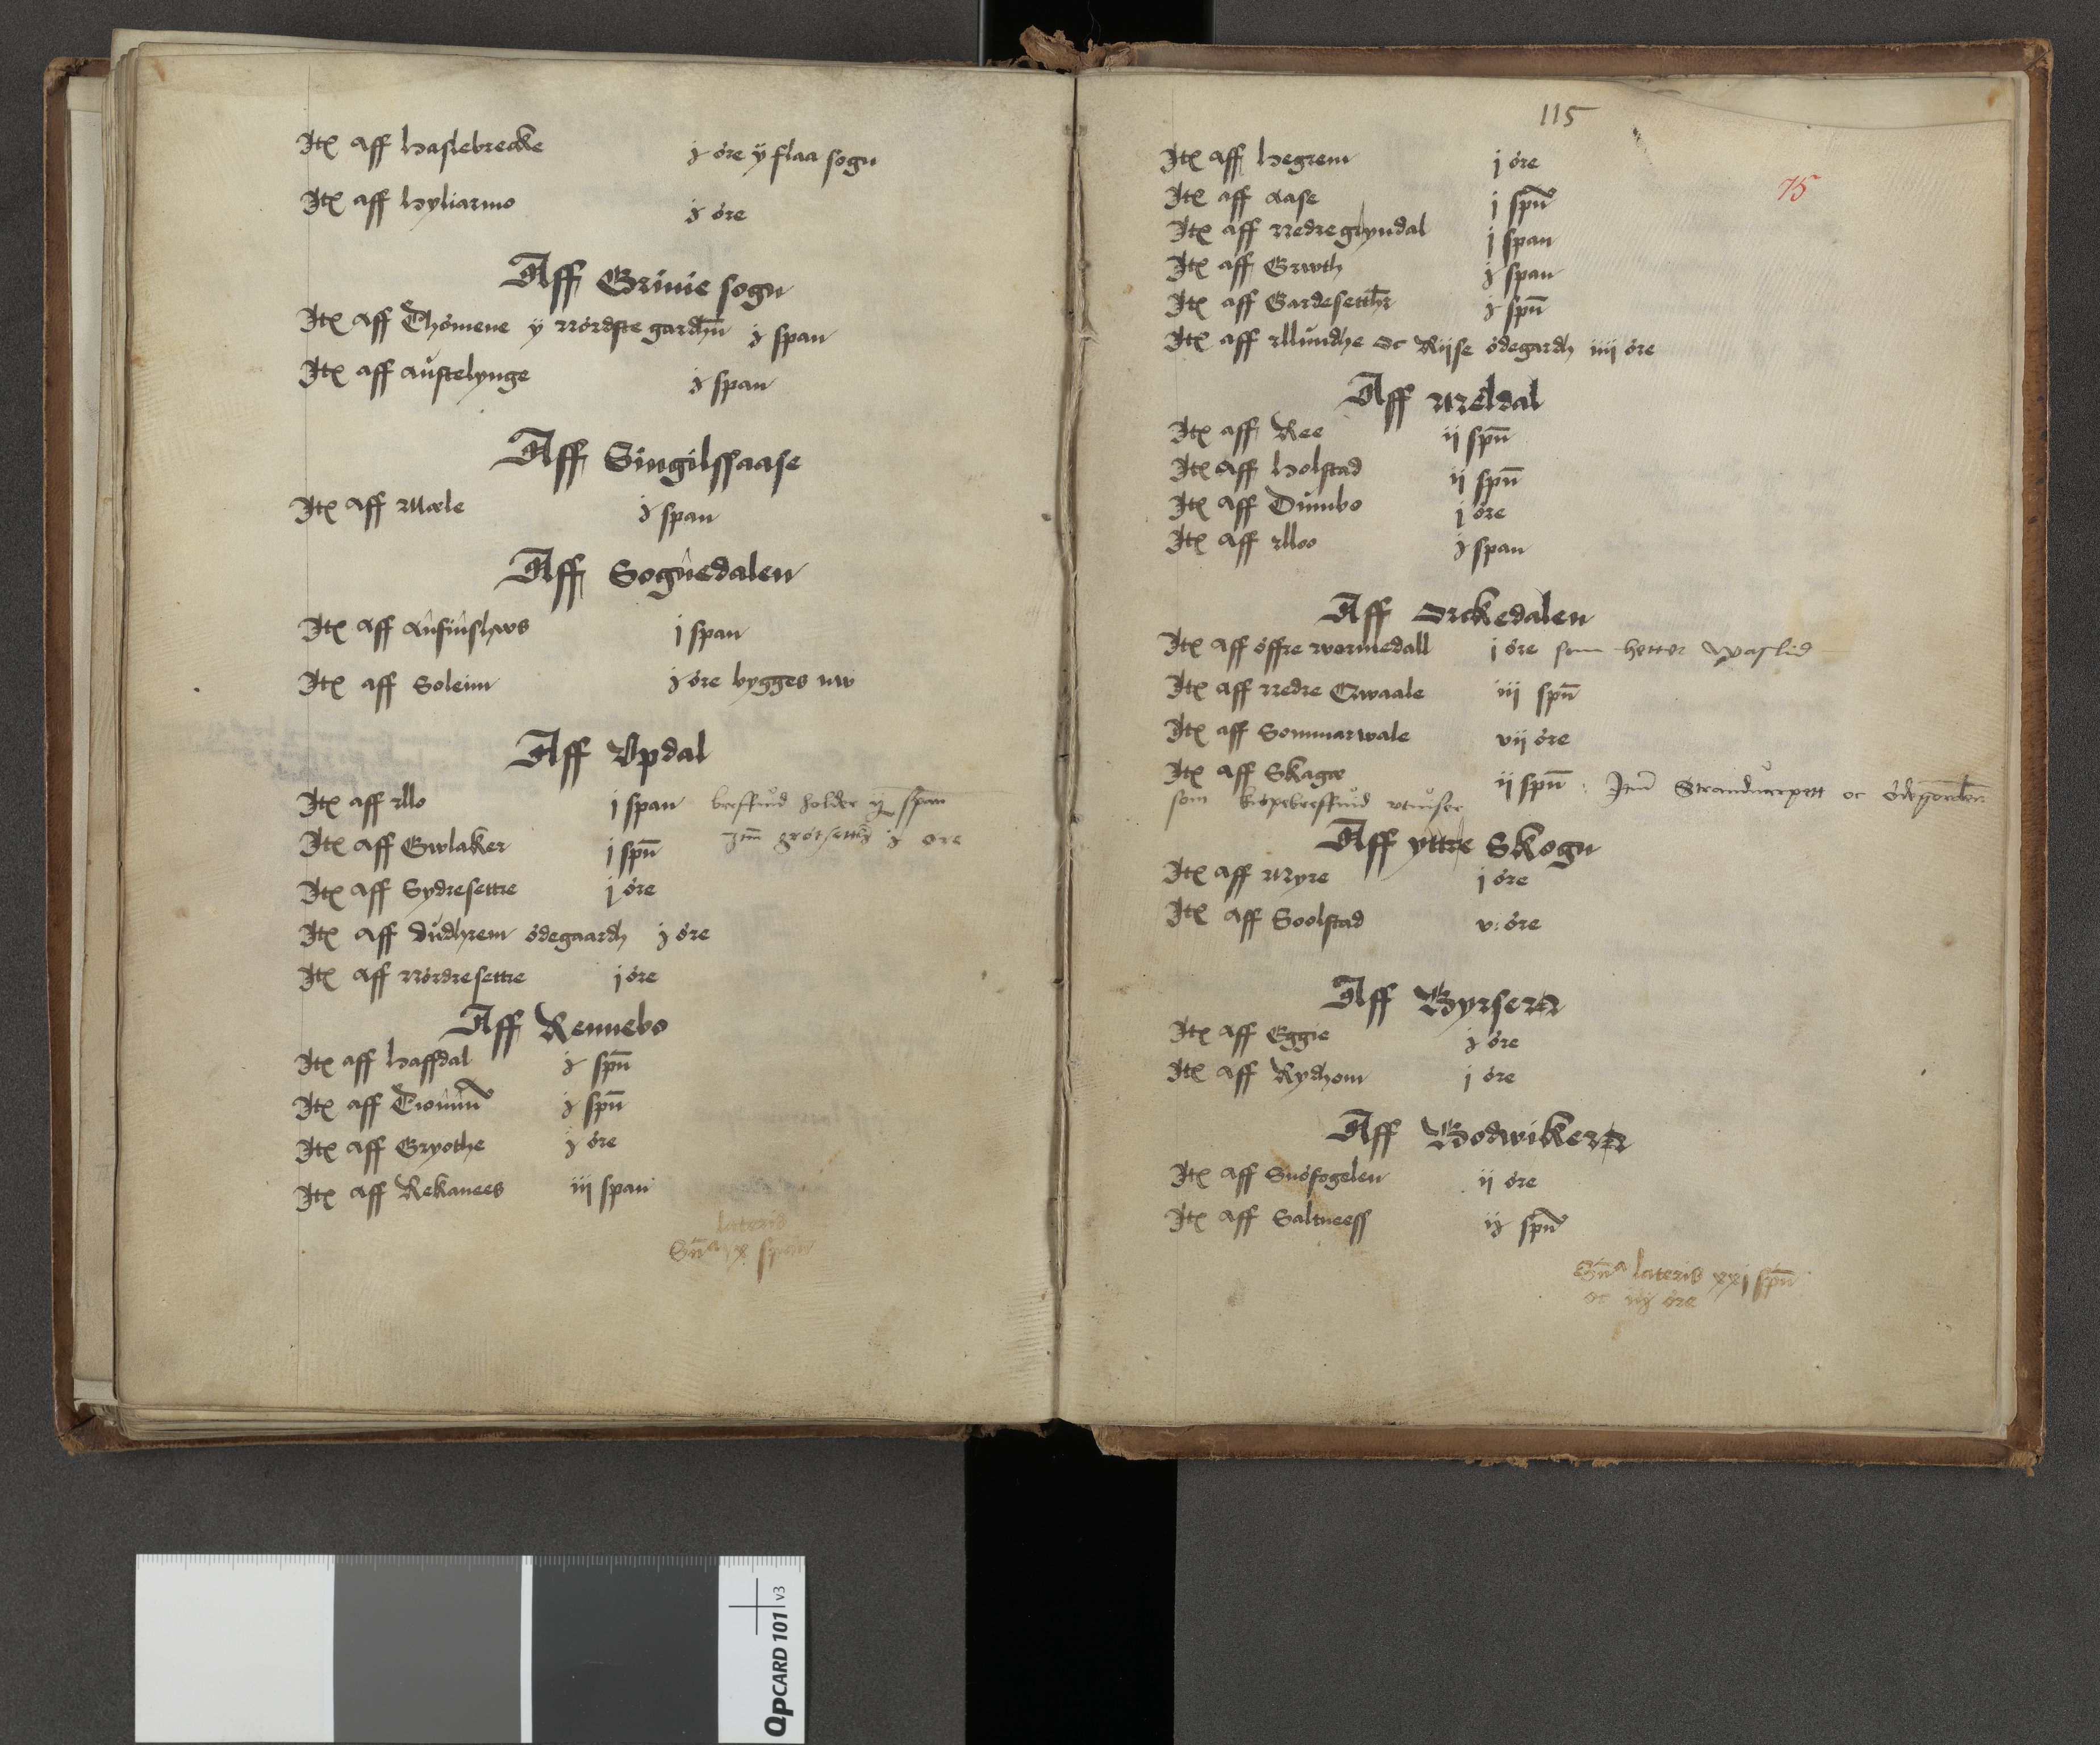 Itē aff haslebrecke j öre ÿ flaa sogn
Itē aff hyliarmo j öre
Aff Grinie sogn
Itē aff Thömene ÿ nordste gardhn̄ j span
Itē aff austelynge j span
Aff Singilssaase
Itē aff Mæle j span
Aff Sognedalen
Itē aff anfinshws j span
Itē aff Soleim j öre bygges nw
Aff Updal
Itē aff Mo j span breffuid holder ij span
Itē aff Gwlaker j spn̄ Itm̄ grötsetter j öre
Itē aff Sydresettre j öre
Itē aff dudhrem ödegaardh j öre
Itē aff nordresettre j öre
Aff Rennebo
Itē aff haffdal j spn̄
Itē aff j spn̄
Itē aff Gryothe j öre
Itē aff Rekanees iij span
lateris
Sūᵃ x span
115
75
Itē aff hegrem j öre
Itē aff aase j spn̄
Itē aff nedregryndal j span
Itē aff Grwth j span
Itē aff Gardesetthr̄ j spn̄
Itē aff Mundhe oc Rijse ödegardh iiij öre
Aff Meldal
Itē aff Ree ij spn̄
Itē aff holstad ij spn̄
Itē aff Dumbo j öre
Itē aff Moo j span
Aff Orckedalen
Itē aff öffre wormedall j öre som hetter waslid
Itē aff nedre Qwaale iij spn̄
Itē aff Sommarwale vij öre
Itē aff Skagæ ij spn̄ : Itm̄ oc ödegorden
som kiöpebreffuid vtuiser
Aff yttre Skogn
Itē aff Myre j öre
Itē aff Soolstad v: öre
Aff Byrsern
Itē aff Eggie j öre
Itē aff Rydhom j öre
Aff Bodwikern
Itē aff Snöfogelen ij öre
Itē aff Saltneess ij spn̄
Sūᵃ lateris xxj spn̄
oc iij öre
QPCARD 101 v3